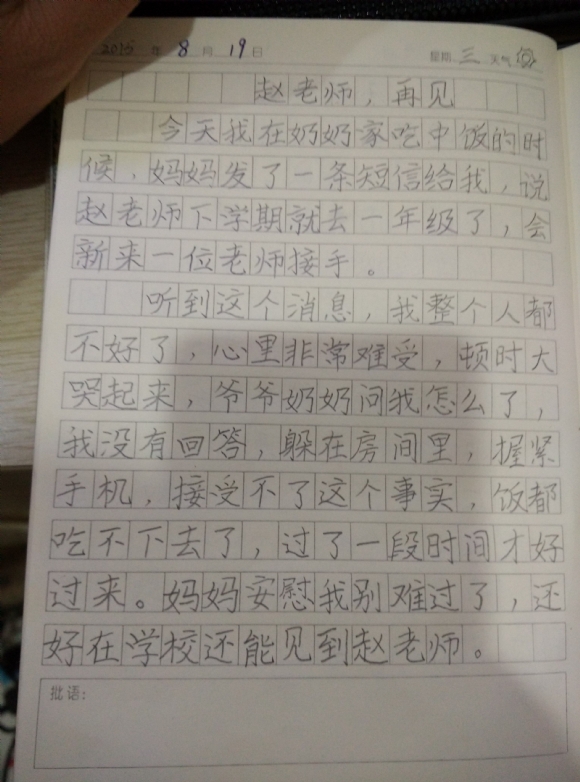 2015 年 8 月 19 日 星期 三 天气
赵老师，再见
今天我在奶奶家吃中饭的时
候，妈妈发了一条短信给我，说
赵老师下学期就去一年级了，会
新来一位老师接手。
听到这个消息，我整个人都
不好了，心里非常难受，顿时大
哭起来，爷爷奶奶问我怎么了，
我没有回答，躲在房间里，握紧
手机，接受不了这个事实，饭都
吃不下去了，过了一段时间才好
过来。妈妈安慰我别难过了，还
好在学校还能见到赵老师。
批语：